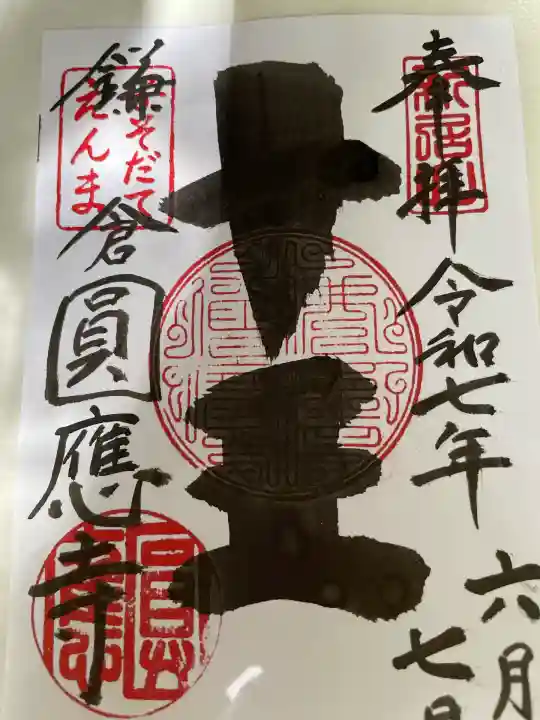 奉拝
令和七年
六月
七日
十王
鎌倉
圓應寺
子そだて
えんま
新居山